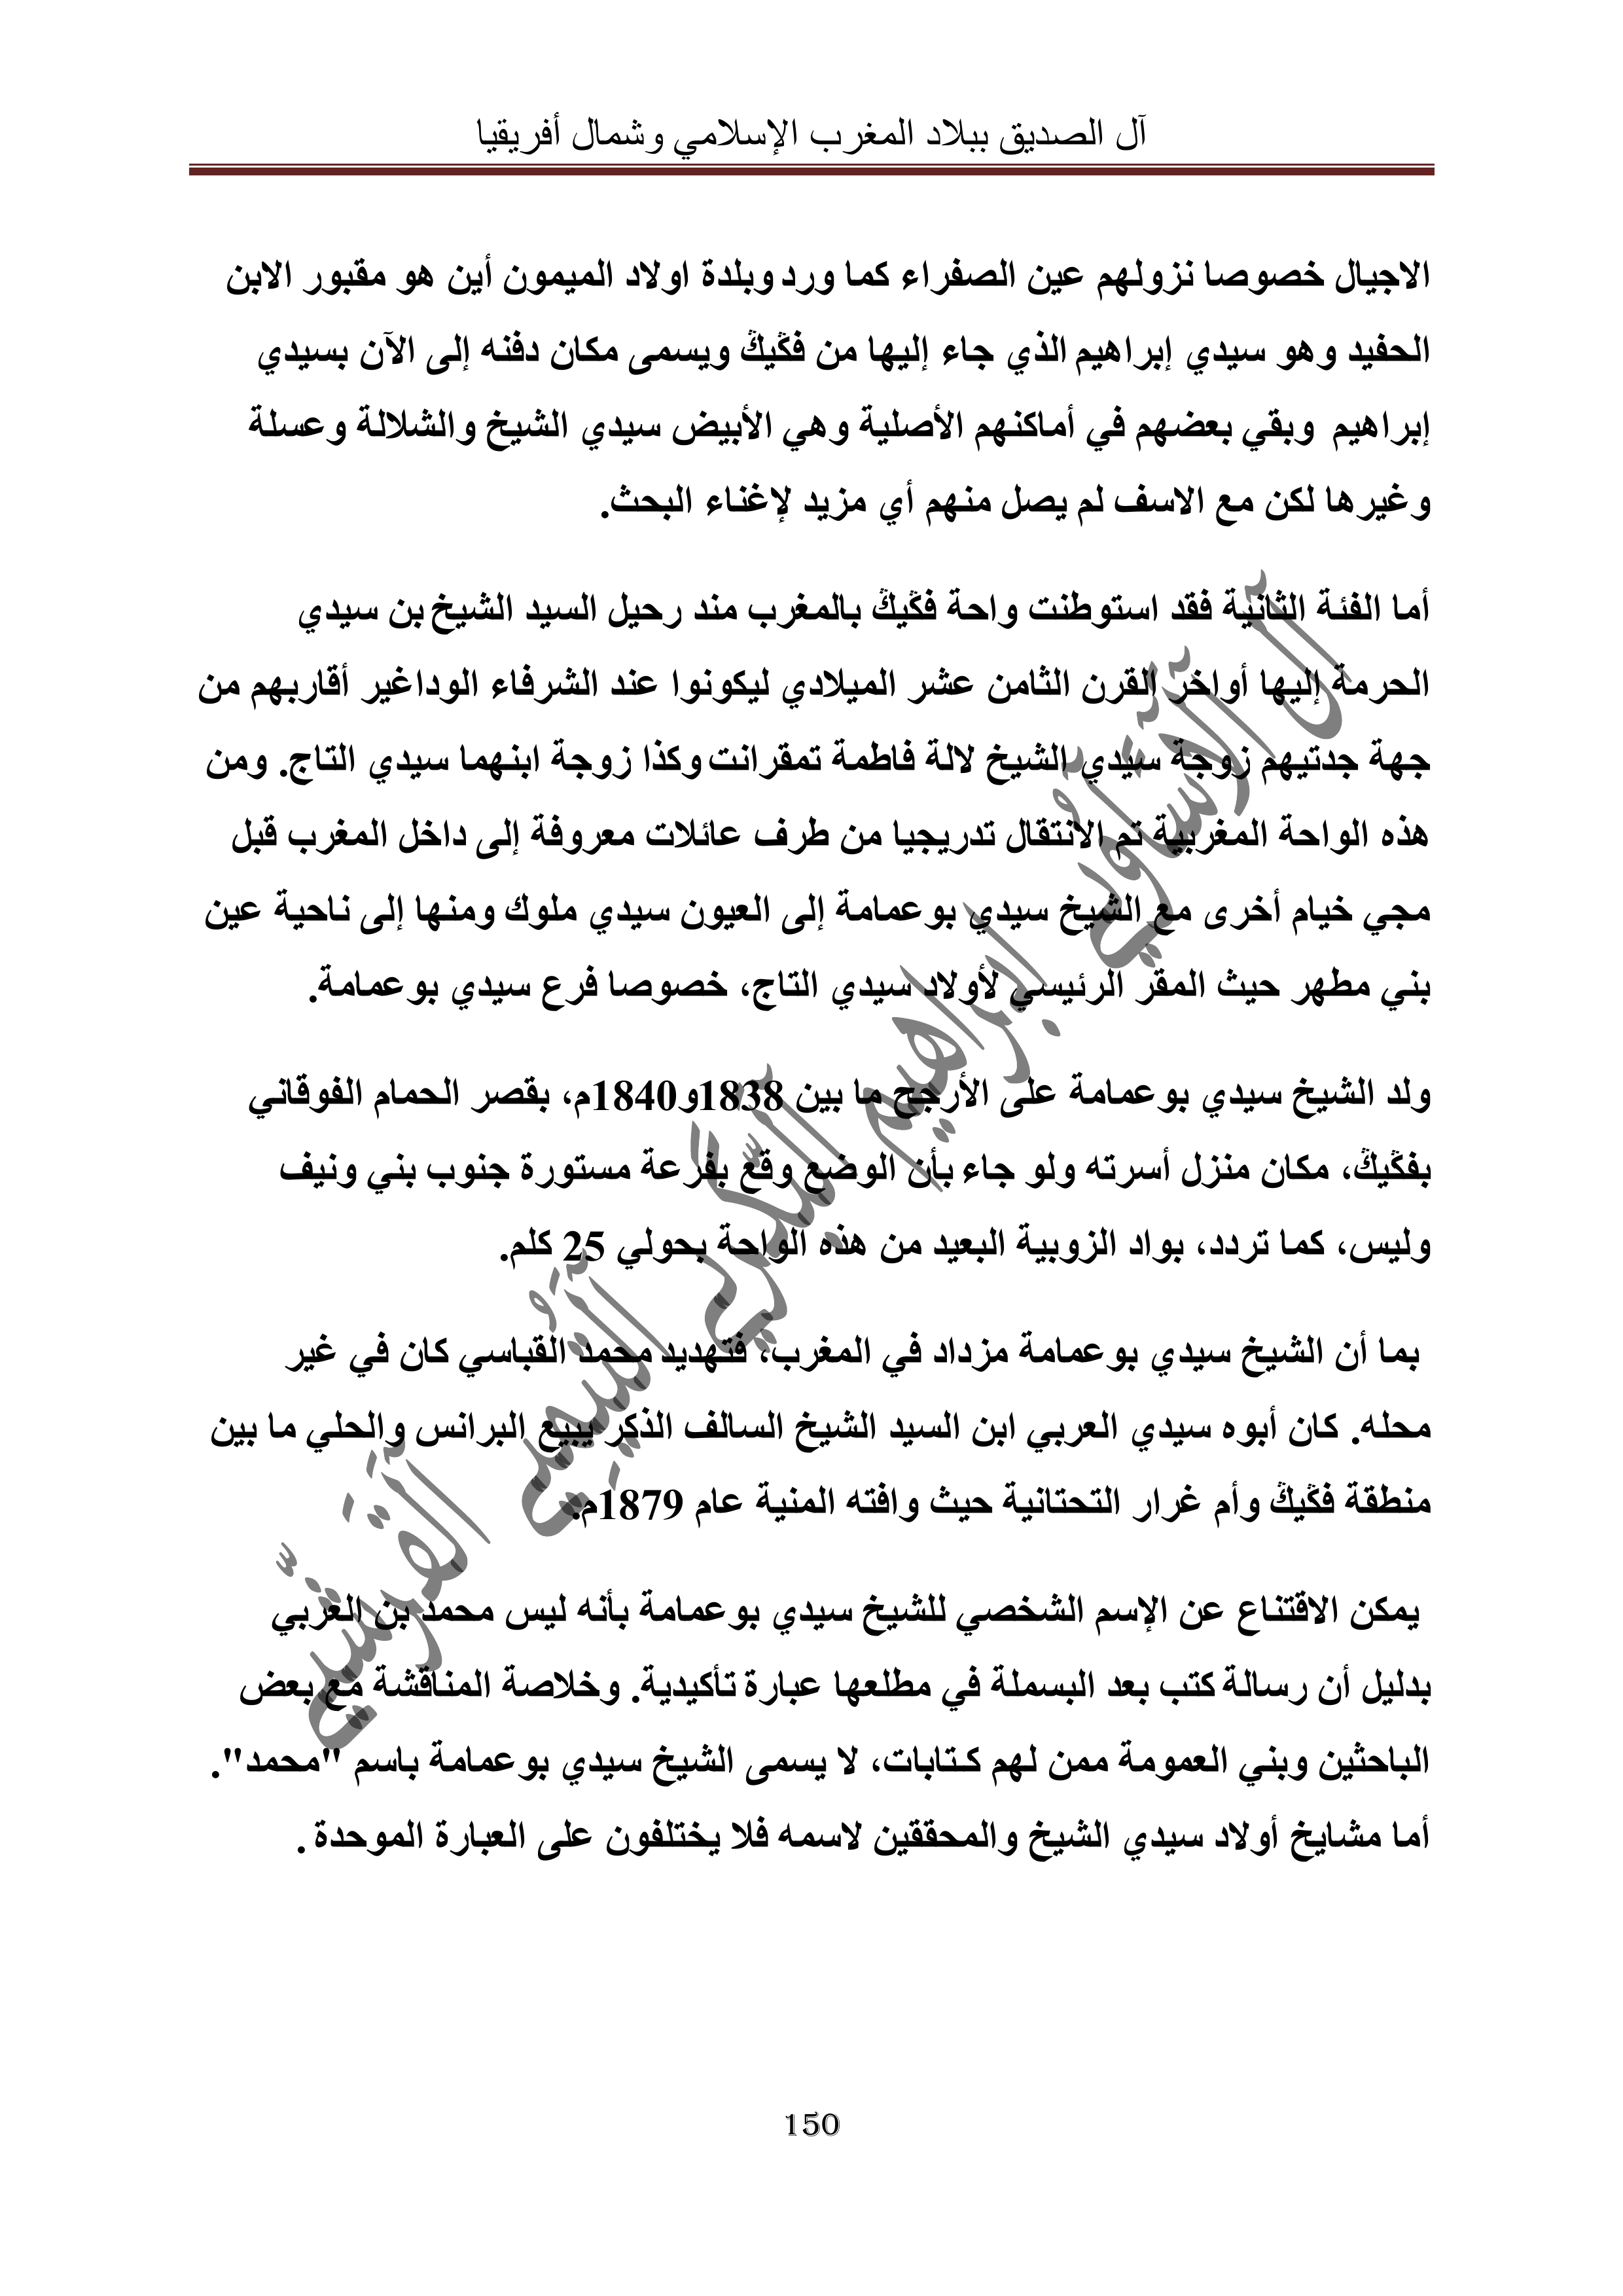 آل الصديق ببلاد المغرب الإسلامي وشمال أفريقيا
الاجيال خصوصا نزولهم عين الصفراء كما ورد وبلدة اولاد الميمون أين هو مقبور الابن
الحفيد وهو سيدي إبراهيم الذي جاء إليها من فڭيڭ ويسمى مكان دفنه إلى الآن بسيدي
إبراهيم وبقي بعضهم في أماكنهم الأصلية وهي الأبيض سيدي الشيخ والشلالة وعسلة
وغيرها لكن مع الاسف لم يصل منهم أي مزيد لإغناء البحث.
أما الفئة الثانية فقد استوطنت واحة فڭيڭ بالمغرب مند رحيل السيد الشيخ بن سيدي
الحرمة إليها أواخر القرن الثامن عشر الميلادي ليكونوا عند الشرفاء الوداغير أقاربهم من
جهة جدتيهم زوجة سيدي الشيخ لالة فاطمة تمقرانت وكذا زوجة ابنهما سيدي التاج. ومن
هذه الواحة المغربية تم الانتقال تدريجيا من طرف عائلات معروفة إلى داخل المغرب قبل
مجي خيام أخرى مع الشيخ سيدي بوعمامة إلى العيون سيدي ملوك ومنها إلى ناحية عين
بني مطهر حيث المقر الرئيسي لأولاد سيدي التاج، خصوصا فرع سيدي بوعمامة.
ولد الشيخ سيدي بوعمامة على الأرجح ما بين 1838و1840م، بقصر الحمام الفوقاني
بفڭيڭ، مكان منزل أسرته ولو جاء بأن الوضع وقع بفرعة مستورة جنوب بني ونيف
وليس، كما تردد، بواد الزوبية البعيد من هذه الواحة بحولي 25 كلم.
بما أن الشيخ سيدي بوعمامة مزداد في المغرب، فتهديد محمد القباسي كان في غير
محله. كان أبوه سيدي العربي ابن السيد الشيخ السالف الذكر يبيع البرانس والحلي ما بين
منطقة فڭيڭ وأم غرار التحتانية حيث وافته المنية عام 1879م.
يمكن الاقتناع عن الإسم الشخصي للشيخ سيدي بوعمامة بأنه ليس محمد بن العربي
بدليل أن رسالة كتب بعد البسملة في مطلعها عبارة تأكيدية. وخلاصة المناقشة مع بعض
الباحثين وبني العمومة ممن لهم كـتابات، لا يسمى الشيخ سيدي بوعمامة باسم "محمد".
أما مشايخ أولاد سيدي الشيخ والمحققين لاسمه فلا يختلفون على العبارة الموحدة .
150